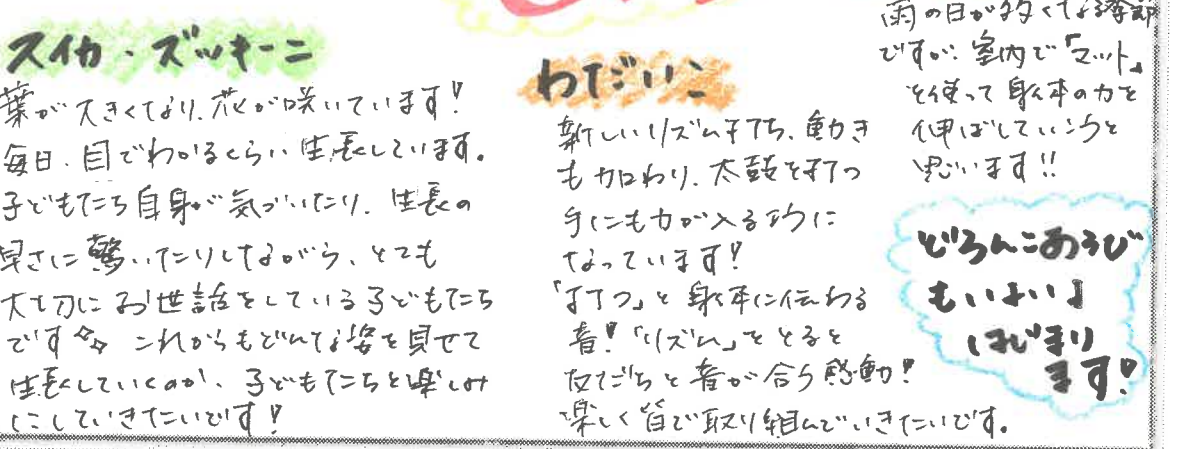 スイカ・ズッキーニ
葉が大きくなり、花が咲いています!
毎日、目でわかるくらい生長しています。
子どもたち自身が気づいたり、生長の
早さに驚いたりしながら、とても
大切にお世話をしている子どもたち
です これからもどんな姿を見せて
生長していくのか、子どもたちと楽しみ
にしていきたいです!
わだいこ
新しいリズム打ち、動き
も加わり、太鼓を打つ
手にも力が入るように
なっています!
「打つ」と身体に伝わる
音!「リズム」をとると
友だちと音が合う感動!
楽しく皆で取り組んでいきたいです。
雨の日が多くなる季節
ですが、室内で「マット」
を使って身体の力を
伸ばしていこうと
思います!!
どろんこあそび
もいよいよ
はじまり
ます!